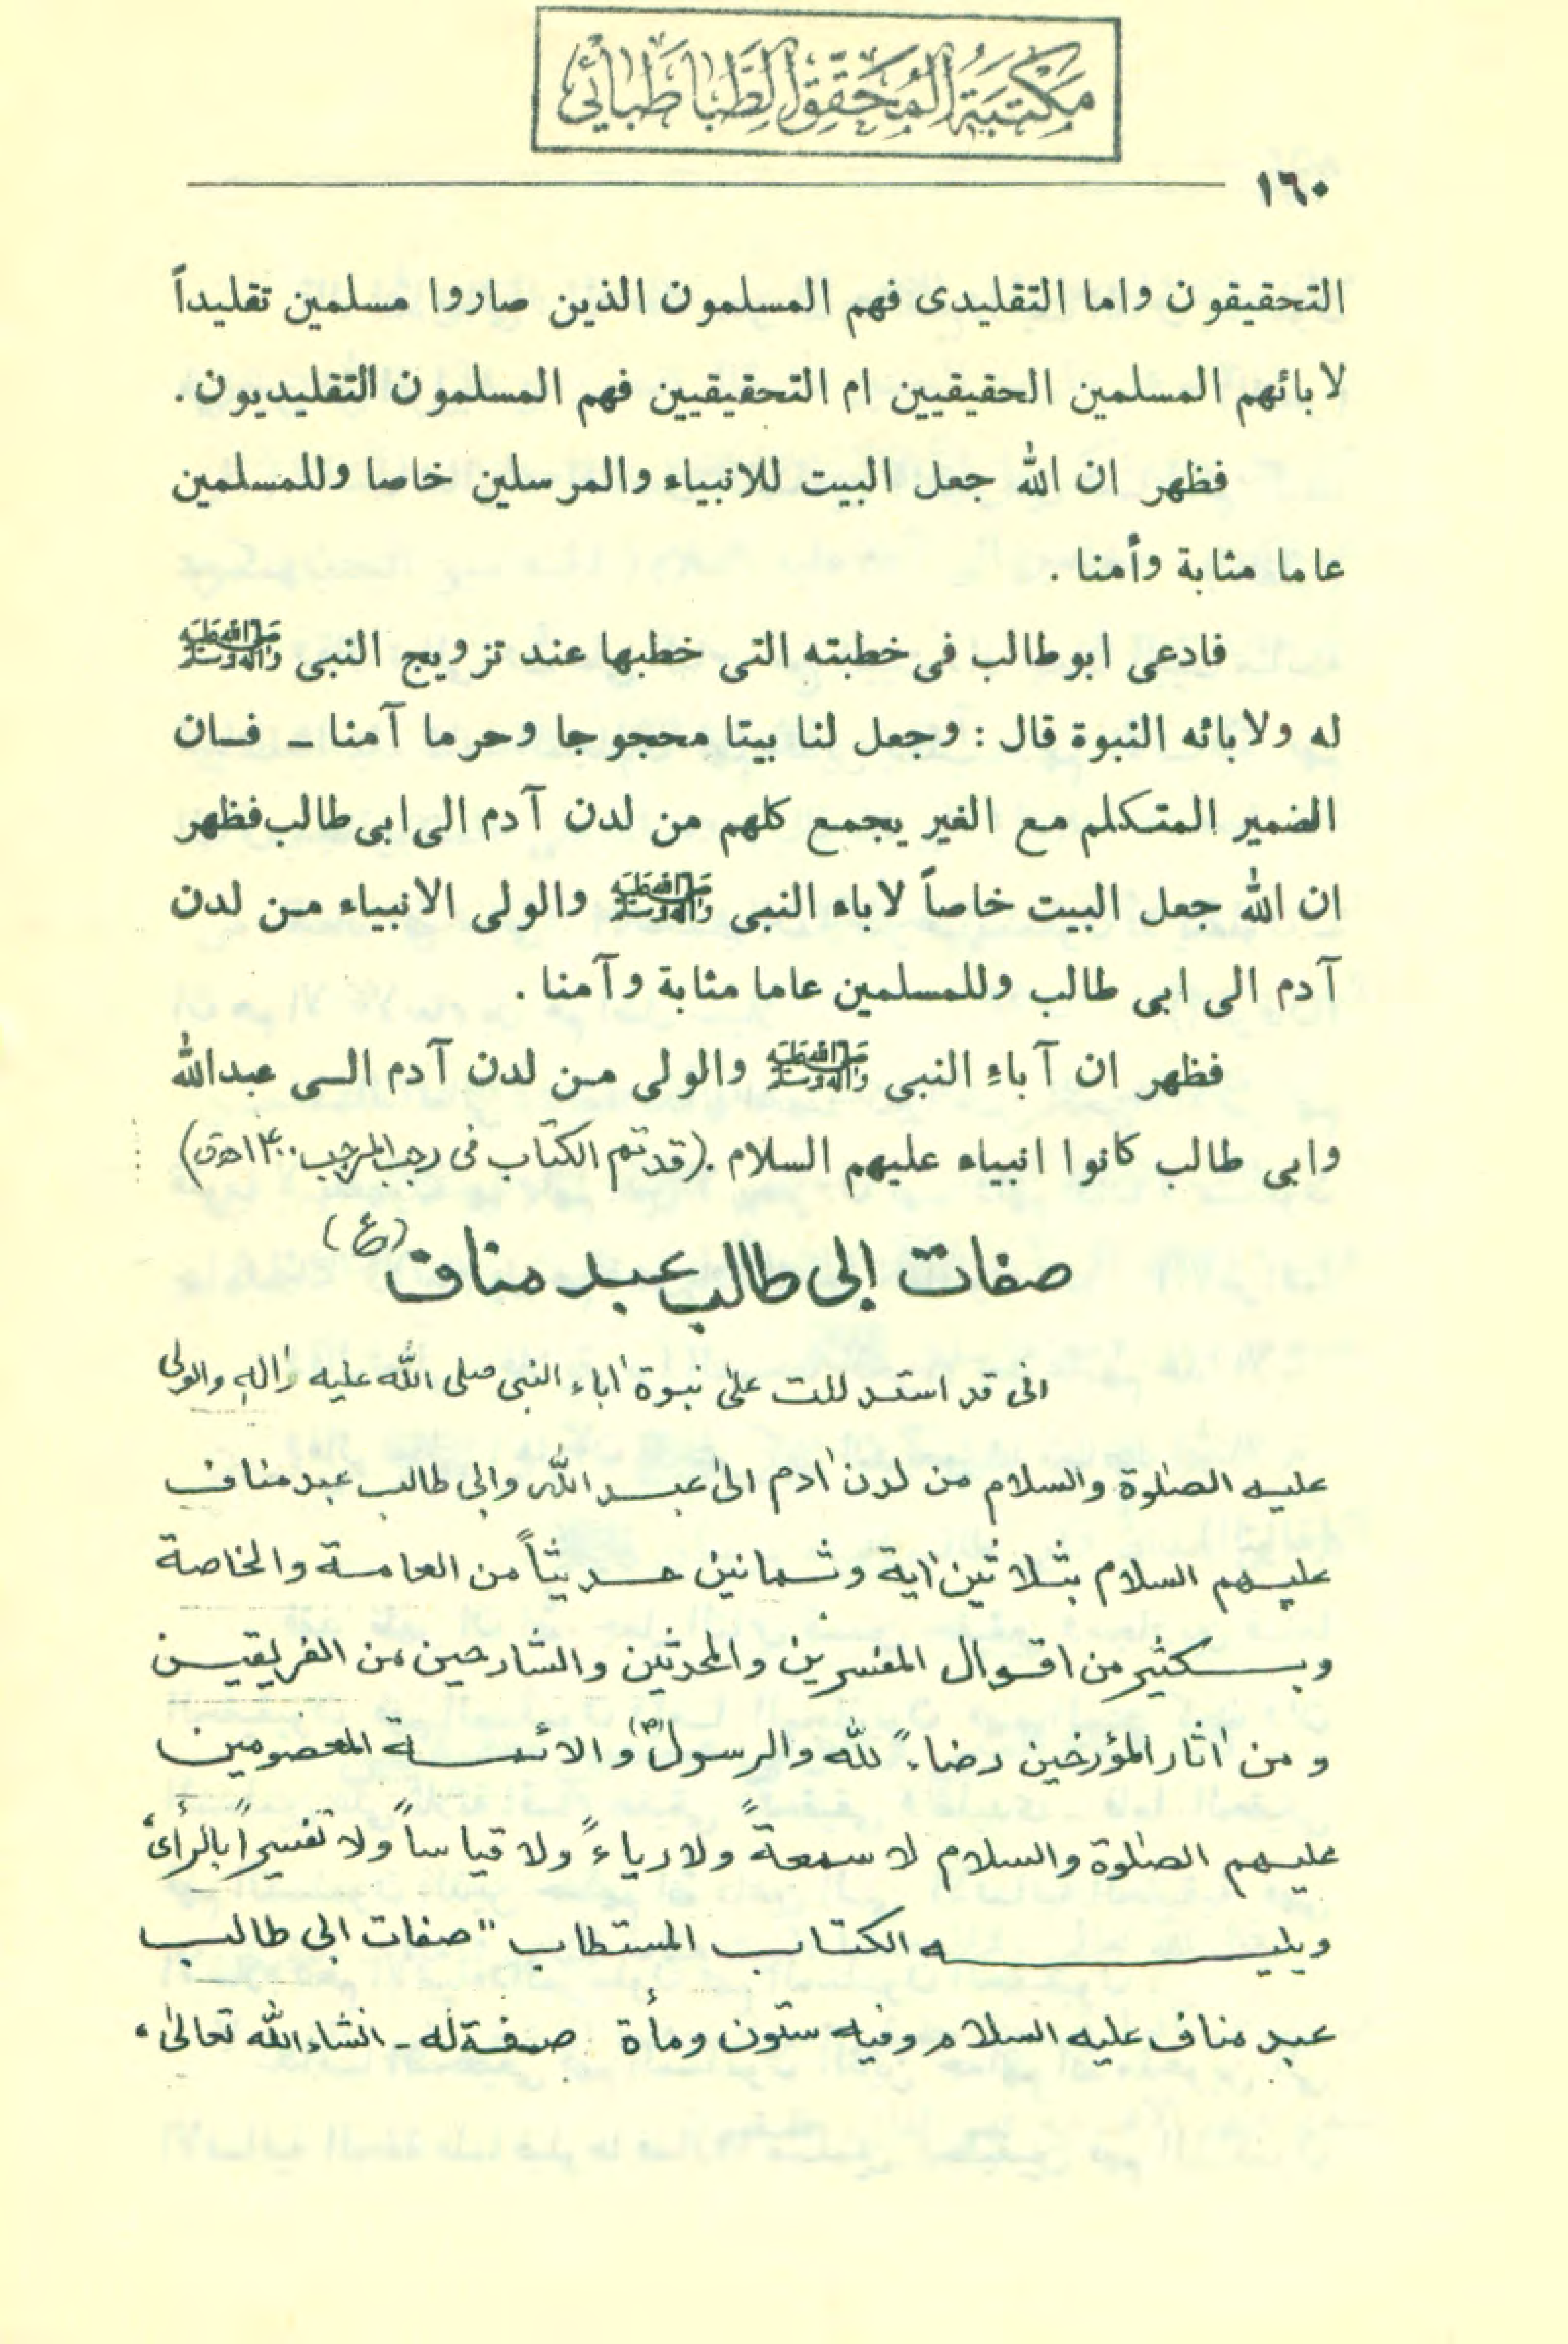 مَكْتبَة المُحَقّق الطَّبَاطَبَائي
١٦٠
التحقيقون واما التقليدى فهم المسلمون الذين صاروا مسلمين تقليداً
لابائهم المسلمين الحقيقيين ام التحقيقيين فهم المسلمون التقليديون.
فظهر ان الله جعل البيت للانبياء والمرسلين خاصا وللمسلمين
عاما مثابة وأمنا .
فادعى ابوطالب فى خطبته التى خطبها عند تزويج النبى صلى الله عليه وآله وسلم
له ولابائه النبوة قال : وجعل لنا بيتا محجوجا وحرما آمنا ـ فان
الضمير المتكلم مع الغير يجمع كلهم من لدن آدم الى ابى طالب فظهر
ان الله جعل البيت خاصاً لاباء النبى صلى الله عليه وآله وسلم والولى الانبياء من لدن
آدم الى ابى طالب وللمسلمين عاما مثابة وآمنا .
فظهر ان آباءِ النبى صلى الله عليه وآله وسلم والولى من لدن آدم الى عبدالله
وابى طالب كانوا انبياء عليهم السلام .(قد تم الكتاب فى رجب المرجب ١٤٠٠هـق)
صفات ابى طالب عبد مناف (ع)
انى قد استدللت على نبوة اباء النبى صلى الله عليه واله والولى
عليه الصلوة والسلام من لدن ادم الى عبد الله وابى طالب عبد مناف
عليهم السلام بثلاثين اية وثمانين حديثاً من العامة والخاصة
وبكثير من اقوال المفسرين والمحدثين والشارحين من الفريقين
ومن اثار المؤرخين رضاءً لله والرسول(ص) والائمة المعصومين
عليهم الصلوة والسلام لا سمعةً ولا رياءً ولا قياساً ولا تفسيراً بالرأى،
ويليه الكتاب المستطاب "صفات ابى طالب
عبد مناف عليه السلام وفيه ستون ومأة صفة له - انشاء الله تعالى،